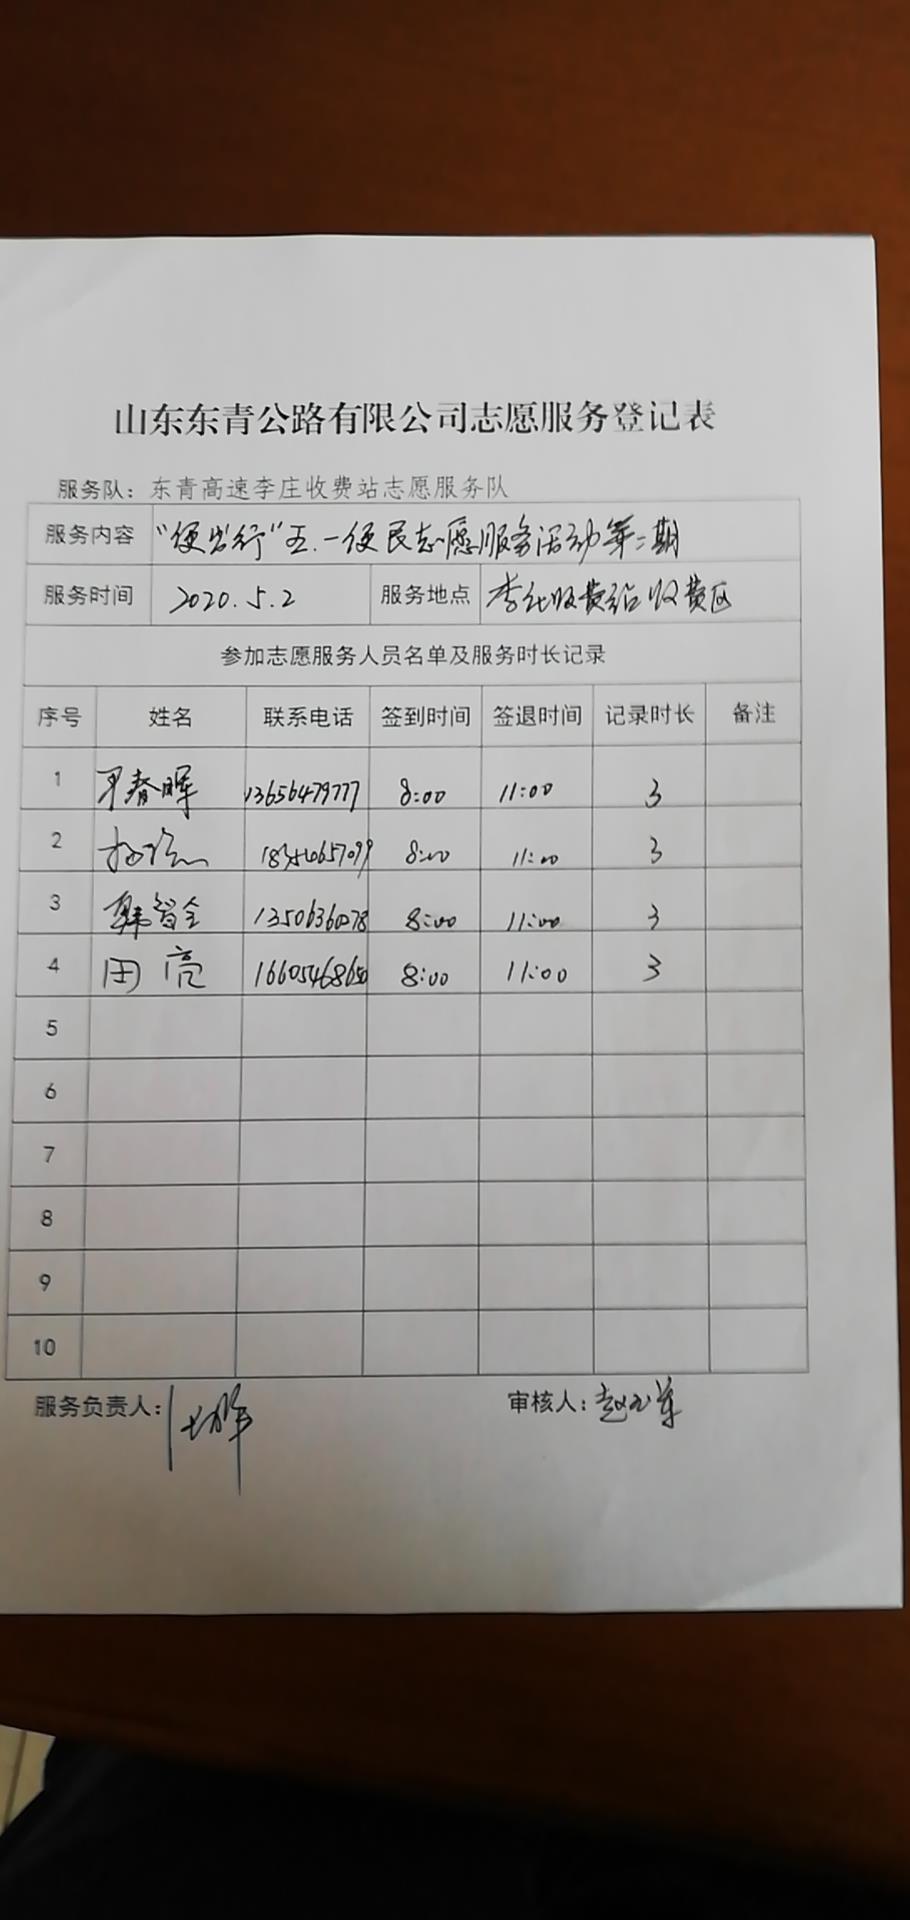 山东东青公路有限公司志愿服务登记表
服务队：东青高速李庄收费站志愿服务队
服务内容 “便出行”五.一便民志愿服务活动第二期
服务时间 2020.5.2 服务地点 李庄收费站收费区
参加志愿服务人员名单及服务时长记录
序号 姓名 联系电话 签到时间 签退时间 记录时长 备注
1 春晖 13656479777 8:00 11:00 3
2 8:00 11:00 3
3 韩智全 8:00 11:00 3
4 田亮 16605468650 8:00 11:00 3
5
6
7
8
9
10
服务负责人： 审核人：赵